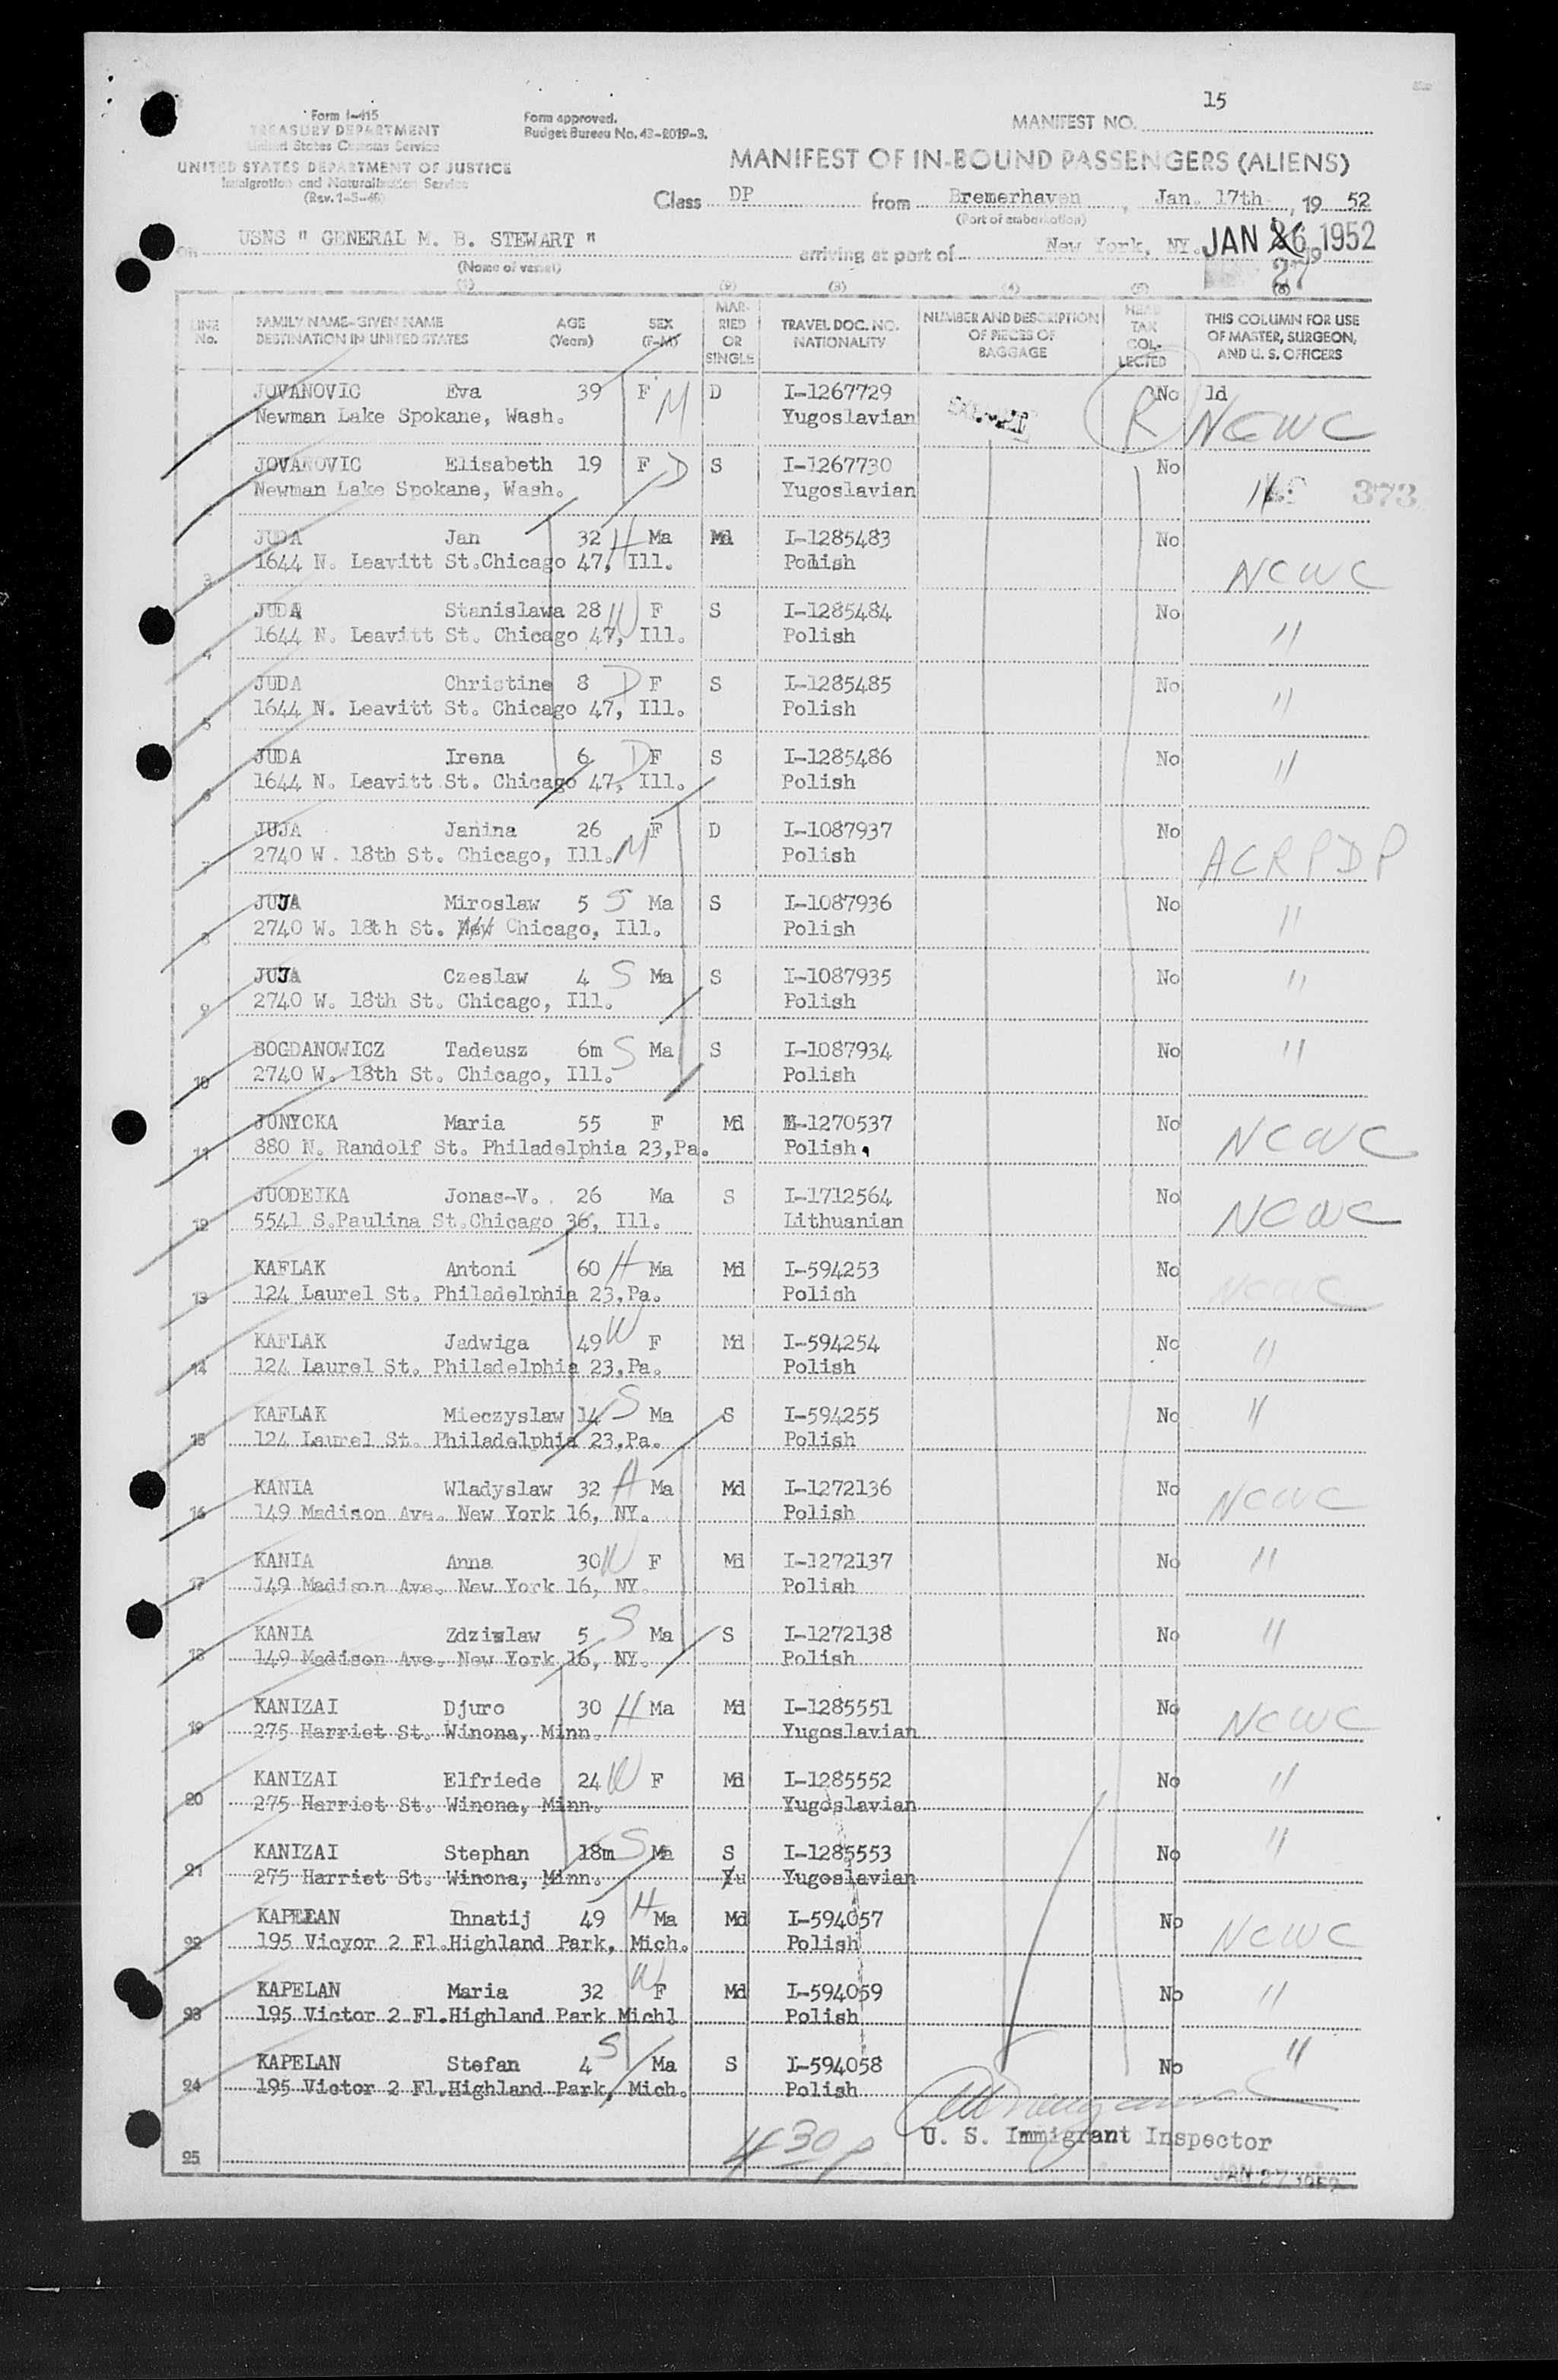 15
Form I-415
TREASURY DEPARTMENT
United States Customs Service
UNITED STATES DEPARTMENT OF JUSTICE
Immigration and Naturalization Service
(Rev. 1-5-46)
Form approved.
Budget Bureau No. 43-R019-3.
MANIFEST NO.
MANIFEST OF IN-BOUND PASSENGERS (ALIENS)
Class DP from Bremerhaven, Jan. 17th, 19 52
(Port of embarkation)
on USNS " GENERAL M. B. STEWART " arriving at port of New York, NY. JAN 26 1952 19
27
(Name of vessel)
(1) (2) (3) (4) (5) (6)
LINE No. FAMILY NAME-GIVEN NAME DESTINATION IN UNITED STATES AGE (Years) SEX (F-M) MARRIED OR SINGLE TRAVEL DOC. NO. NATIONALITY NUMBER AND DESCRIPTION OF PIECES OF BAGGAGE HEAD TAX COLLECTED THIS COLUMN FOR USE OF MASTER, SURGEON, AND U. S. OFFICERS
JOVANOVIC Eva 39 F M D I-1267729 R No ld
Newman Lake Spokane, Wash. Yugoslavian NCWC
JOVANOVIC Elisabeth 19 F D S I-1267730 No
Newman Lake Spokane, Wash. Yugoslavian 11 373
3 JUDA Jan 32 H Ma Md I-1285483 No
1644 N. Leavitt St.Chicago 47, Ill. Polish NCWC
4 JUDA Stanislawa 28 W F S I-1285484 No
1644 N. Leavitt St. Chicago 47, Ill. Polish "
5 JUDA Christine 8 D F S I-1285485 No
1644 N. Leavitt St. Chicago 47, Ill. Polish "
6 JUDA Irena 6 D F S I-1285486 No
1644 N. Leavitt St. Chicago 47, Ill. Polish "
7 JUJA Janina 26 F D I-1087937 No
2740 W. 18th St. Chicago, Ill. M Polish ACRPDP
8 JUJA Miroslaw 5 S Ma S I-1087936 No
2740 W. 18th St. New Chicago, Ill. Polish "
9 JUJA Czeslaw 4 S Ma S I-1087935 No
2740 W. 18th St. Chicago, Ill. Polish "
10 BOGDANOWICZ Tadeusz 6m S Ma S I-1087934 No "
2740 W. 18th St. Chicago, Ill. Polish
11 JONYCKA Maria 55 F Md I-1270537 No
880 N. Randolf St. Philadelphia 23,Pa. Polish. NCWC
12 JUODEIKA Jonas-V. 26 Ma S I-1712564 No
5541 S.Paulina St.Chicago 36, Ill. Lithuanian NCWC
13 KAFLAK Antoni 60 H Ma Md I-594253 No
124 Laurel St. Philadelphia 23,Pa. Polish NCWC
14 KAFLAK Jadwiga 49 W F Md I-594254 No
124 Laurel St. Philadelphia 23,Pa. Polish "
15 KAFLAK Mieczyslaw 14 S Ma S I-594255 No "
124 Laurel St. Philadelphia 23,Pa. Polish
16 KANIA Wladyslaw 32 H Ma Md I-1272136 No
149 Madison Ave. New York 16, NY. Polish NCWC
17 KANIA Anna 30 W F Md I-1272137 No "
149 Madison Ave. New York 16, NY. Polish
18 KANIA Zdzislaw 5 S Ma S I-1272138 No "
149 Madison Ave. New York 16, NY. Polish
19 KANIZAI Djuro 30 H Ma Md I-1285551 No
275 Harriet St. Winona, Minn. Yugoslavian NCWC
20 KANIZAI Elfriede 24 W F Md I-1285552 No "
275 Harriet St. Winona, Minn. Yugoslavian
21 KANIZAI Stephan 18m S Ma S I-1285553 No "
275 Harriet St. Winona, Minn. Yu Yugoslavian
22 KAPELAN Ihnatij 49 H Ma Md I-594057 No
195 Vicyor 2 Fl.Highland Park, Mich. Polish NCWC
23 KAPELAN Maria 32 W F Md I-594059 No
195 Victor 2 Fl.Highland Park Michl Polish "
24 KAPELAN Stefan 4 S Ma S I-594058 No "
195 Victor 2 Fl.Highland Park, Mich. Polish
U. S. Immigrant Inspector
25 4 30 p
JAN 27 1952